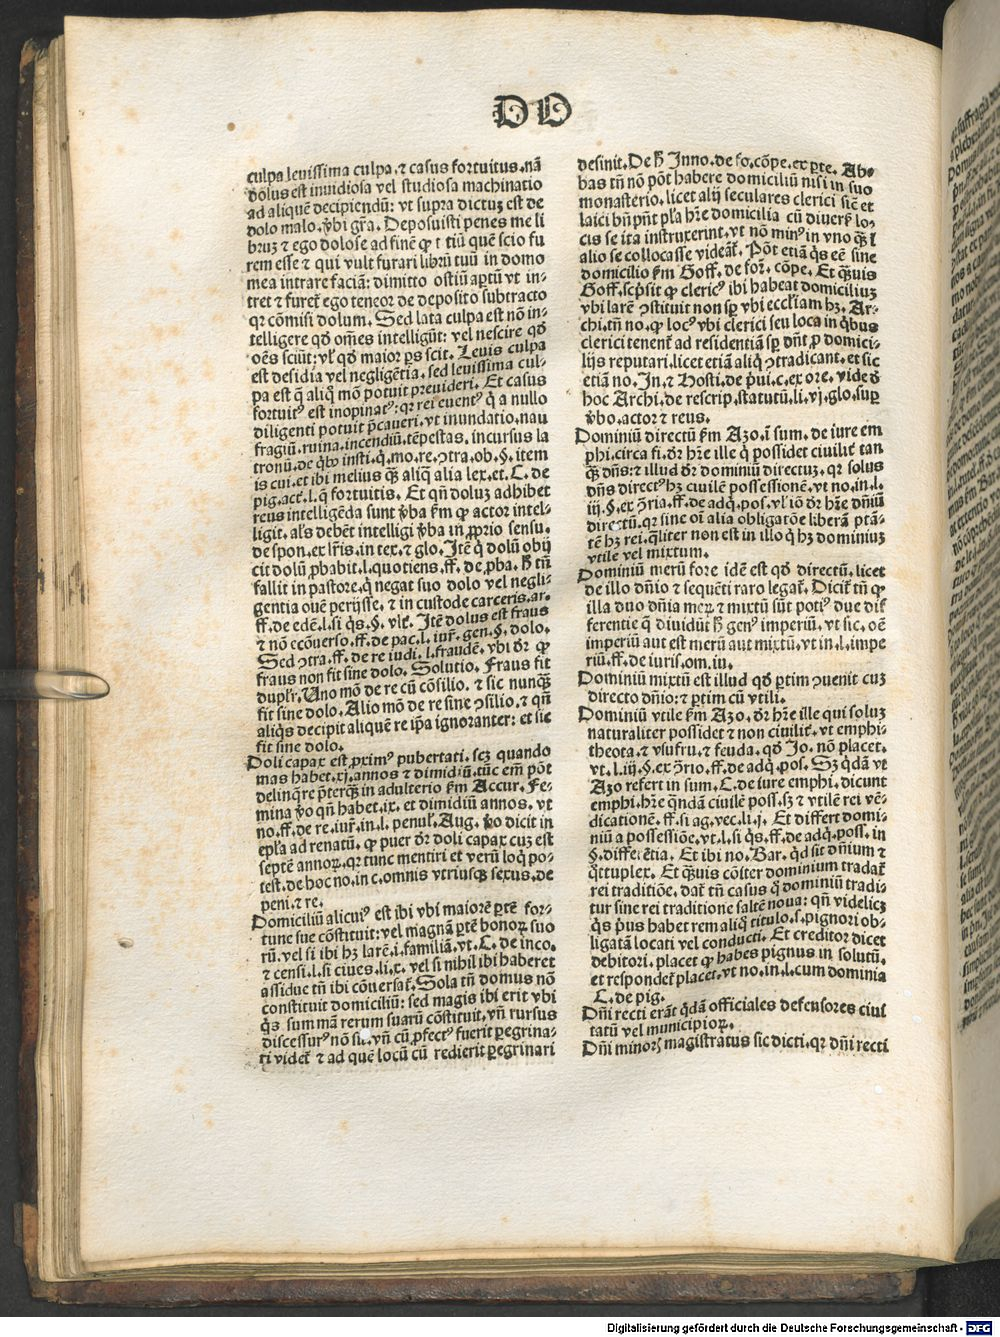 DO
culpa leuissima culpa. ⁊ casus fortuitus. nā
dolus est inuidiosa vel studiosa machinatio
ad aliquē decipiendū: vt supra dictuꝫ est de
dolo malo. ꝟbi gr̄a. Deposuisti penes me li
bruꝫ ⁊ ego dolose ad finē ꝙ t tiū quē scio fu
rem esse ⁊ qui vult furari librū tuū in domo
mea intrare faciā: dimitto ostiū aꝑtū vt in-
tret ⁊ furet᷑ ego teneor de deposito subtracto
qꝛ cōmisi dolum. Sed lata culpa est nō in-
telligere qd̄ om̄es intelligūt: vel nescire qd̄
oēs sciūt: vl̓ qd̄ maior ꝑs scit. Leuis culpa
est desidia vel negligētia. sed leuissima cul-
pa est q̄ aliq̊ mō potuit preuideri. Et casus
fortuitꝰ est inopinatꝰ: qꝛ rei euentꝰ q̓ a nullo
diligenti potuit p̄caueri. vt inundatio. nau
fragiū. ruina. incendiū. tēpestas. incursus la
tronū. de q̓bꝰ insti. q̓. mo. re. ꝯtra. ob. §. item
is cui. et ibi melius qꝫ aliq̓ alia lex. et. C. de
pig. act̄. l. q̄ fortuitis. Et qn̄ doluꝫ adhibet
reus intelligēda sunt ꝟba ẜm ꝙ actor intel-
ligit. al̓s debēt intelligi ꝟba in ꝓprio sensu.
de spon. ex lr̄is. in tex. ⁊ glo. Itē q̓ dolū obij
cit dolū ꝓbabit. l. quotiens. ff. de ꝓba. h̄ tn̄
fallit in pastore. q̓ negat suo dolo vel negli-
gentia ouē perijsse. ⁊ in custode carceris. ar.
ff. de edē. l. si q̓s. §. vlt̄. Itē dolus est fraus
⁊ nō ecōuerso. ff. de pac. l. iur̄. gen. §. dolo.
Sed ꝯtra. ff. de re iudi. l. fraudē. vbi dr̄ ꝙ
fraus non fit sine dolo. Solutio. Fraus fit
duplr̄. Uno mō de re cū cōsilio. ⁊ sic nunqꝫ
fit sine dolo. Alio mō de re sine ꝯsilio. ⁊ qn̄
aliq̓s decipit aliquē re ip̄a ignoranter: et sic
fit sine dolo.
Doli capax est ꝓximꝰ pubertati. scꝫ quando
mas habet. xj. annos ⁊ dimidiū. tūc em̄ pōt
delinq̄re p̄terqꝫ in adulterio ẜm Accur. Fe-
mina ꝟo qn̄ habet. ix. et dimidiū annos. vt
no. ff. de re. iur̄. in. l. penul̓. Aug. ꝟo dicit in
ep̄la ad renatū. ꝙ puer dr̄ doli capax cuꝫ est
septē annoꝝ. qꝛ tunc mentiri et verū loq̓ po-
test. de hoc no. in c. omnis vtriusqꝫ sexus. de
peni. ⁊ re.
Domiciliū alicuiꝰ est ibi vbi maiorē ꝑtē for-
tune sue cōstituit: vel magnā ꝑtē bonoꝝ suo
rū. vel si ibi hꝫ larē. i. familiā. vt. C. de inco.
⁊ censi. l. si ciues. li. x. vel si nihil ibi haberet
assidue tn̄ ibi cōuersat᷑. Sola tn̄ domus nō
constituit domiciliū: sed magis ibi erit vbi
q̓s summā rerum suarū cōstituit. vn̄ rursus
discessurꝰ nōn sit. vn̄ cū ꝓfectꝰ fuerit ꝑegrina-
ri videt᷑ ⁊ ad quē locū cū redierit ꝑegrinari
desinit. De h̄ Inno. de fo. cōpe. ex ꝑte. Ab-
bas tn̄ nō pōt habere domiciliū nisi in suo
monasterio. licet alij seculares clerici sic̄ et
laici bn̄ pn̄t pl̓a hr̄e domicilia cū diuers̄ lo-
cis se ita instruxerint. vt nō minꝰ in vno qꝫ ī
alio se collocasse videāt᷑. Pōt etiā q̓s eē sine
domicilio ẜm Goff. de foꝛ. cōpe. Et qꝫuis
Goff. scp̓sit ꝙ clericꝰ ibi habeat domiciliuꝫ
vbi larē ꝯstituit non sꝑ vbi eccl̓iam hꝫ. Ar-
chi. tn̄ no. ꝙ locꝰ vbi clerici seu loca in q̓bus
clerici tenent᷑ ad residentiā sꝑ dn̄t ꝓ domici-
lijs reputari. licet etiā aliq̓ ꝯtradicant. et sic
etiā no. In. ⁊ Hosti. de p̓ui. c. ex ore. vide d̄
hoc Archi. de rescrip. statutū. li. vj. glo. suꝑ
ꝟbo. actor ⁊ reus.
Dominiū directū ẜm Azo. ī sum. de iure em
phi. circa fi. dr̄ hr̄e ille q̓ possidet ciuilit̄ tan
qꝫ dn̄s: ⁊ illud dr̄ dominiū directuꝫ. qꝛ solus
dn̄s directꝰ hꝫ ciuilē possessionē. vt no. in. l.
iij. §. ex ꝯ̄ria. ff. de adq̓. pos. vl̓ iō dr̄ hr̄e dn̄iū
directū. qꝛ sine oī alia obligatōe liberā ptā-
tē hꝫ rei. q̓liter non est in illo q̓ hꝫ dominiuꝫ
vtile vel mixtum.
Dominiū merū fore idē est qd̄ directū. licet
de illo dn̄io ⁊ sequēti raro legat᷑. Dicit᷑ tn̄ ꝙ
illa duo dn̄ia meꝝ ⁊ mixtū sūt potiꝰ due dif
ferentie q̄ diuidūt h̄ genꝰ imperiū. vt sic. oē
imperiū aut est merū aut mixtū. vt in. l. impe
riū. ff. de iuris. om. iu.
Dominiū mixtū est illud qd̄ ꝑtim ꝯuenit cuꝫ
directo dn̄io: ⁊ ꝑtim cū vtili.
Dominiū vtile ẜm Azo. dr̄ hr̄e ille qui soluꝫ
naturaliter possidet ⁊ non ciuilit̄. vt emphi-
theota. ⁊ vsufru. ⁊ feuda. qd̄ Jo. nō placet.
vt. l. iij. §. ex ꝯ̄rio. ff. de adq̓. pos. Sꝫ q̓dā vt
Azo refert in sum. C. de iure emphi. dicunt
emphi. hr̄e q̄ndā ciuilē poss. sꝫ ⁊ vtilē rei vē-
dicationē. ff. si ag. vec. li. j. Et differt domi-
niū a possessiōe. vt. l. si q̓s. ff. de adq̓. poss. in
§. differētia. Et ibi no. Bar. q̓d sit dn̄ium ⁊
q̊tuplex. Et qꝫuis cōiter dominium tradat᷑
rei traditiōe. dat᷑ tn̄ casus q̊ dominiū tradi-
tur sine rei traditione saltē noua: qn̄ videlicꝫ
q̓s p̓us habet rem aliq̊ titulo. s. pignori ob-
ligatā locati vel conducti. Et creditor dicet
debitori. placet ꝙ habes pignus in solutū.
et respondet᷑ placet. vt no. in. l. cum dominia
C. de pig.
Dn̄i recti erāt q̓dā officiales defensores ciui
tatū vel municipioꝝ.
Dn̄i minorꝫ magistratus sic dicti. qꝛ dn̄i recti
Digitalisierung gefördert durch die Deutsche Forschungsgemeinschaft - DFG